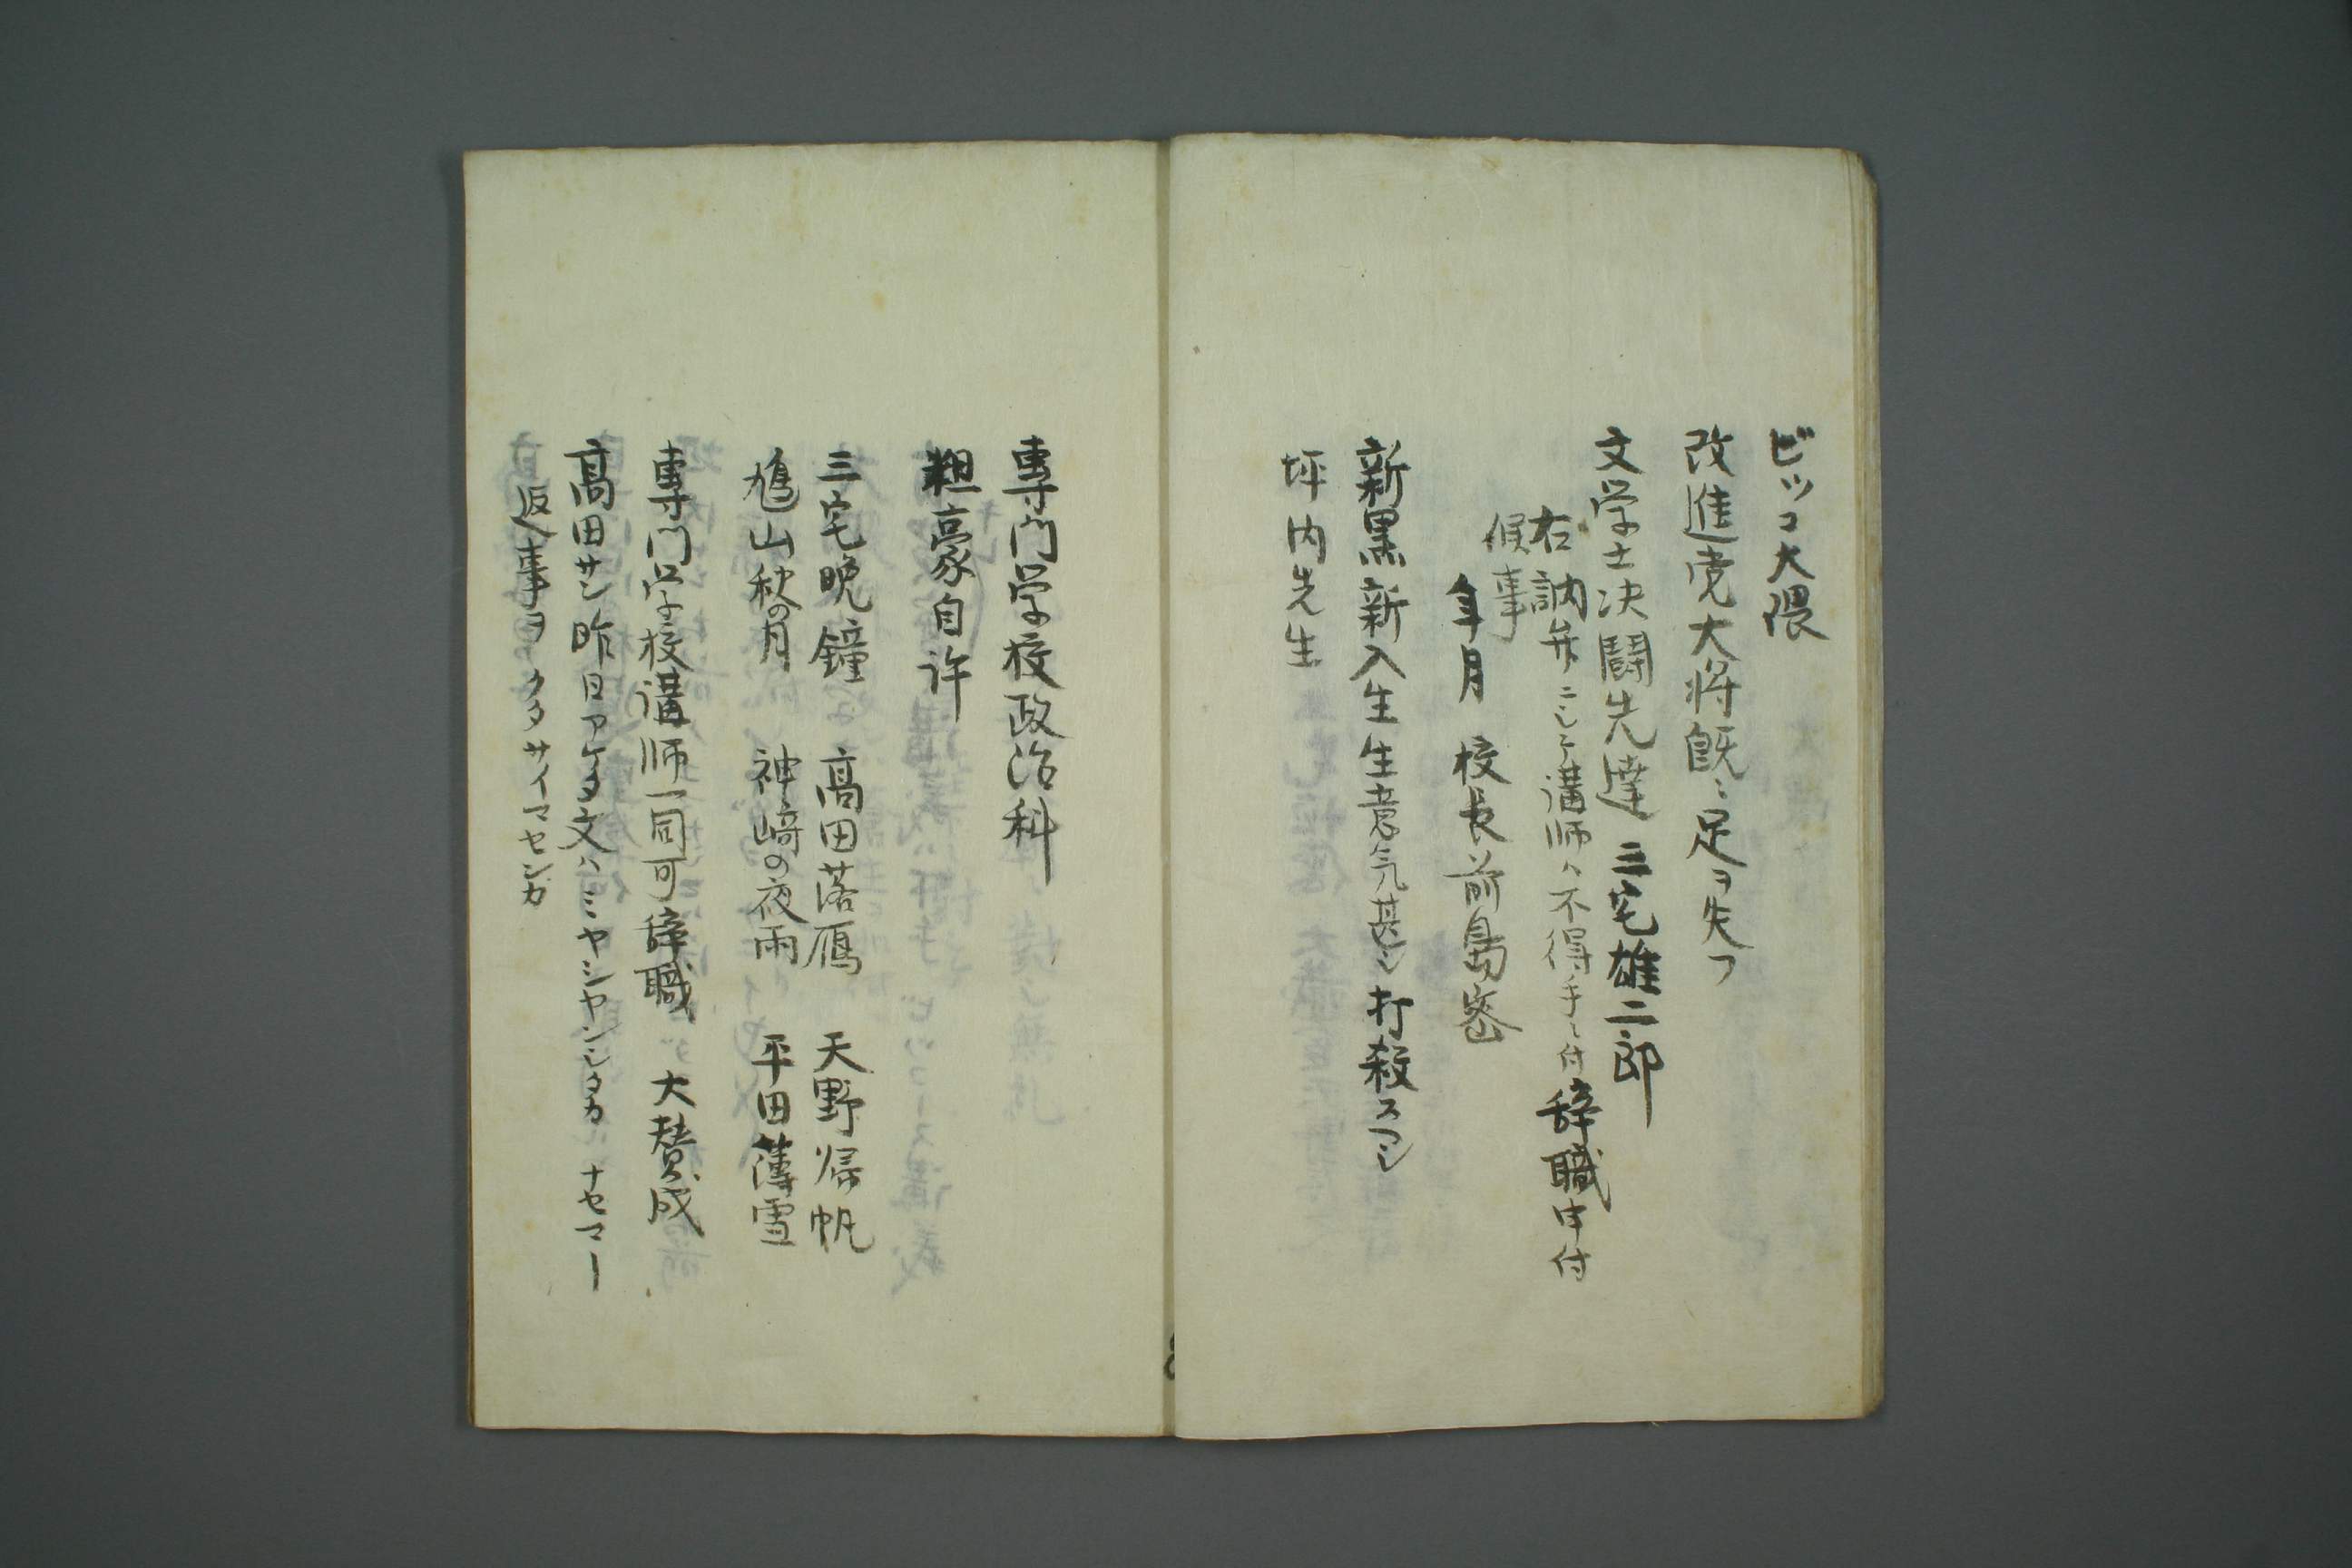 ビツコ大隈
改進党大将既ニ足ヲ失フ
文学士决闘先達 三宅雄二郎
右訥弁ニシテ講師ハ不得手ニ付辞職申付
候事
年月 校長前島密
新黒新入生生意気甚シ打殺スベシ
坪内先生
専門学校政治科
粗豪自许
三宅晩鐘 高田落雁 天野帰帆
鳩山秋の月 神﨑の夜雨 平田薄雪
専門学校講師一同可辞職 大賛成
高田サン昨日アケタ文ハミヤシヤンシタカ ナセマー
返事ヲクタサイマセンカ